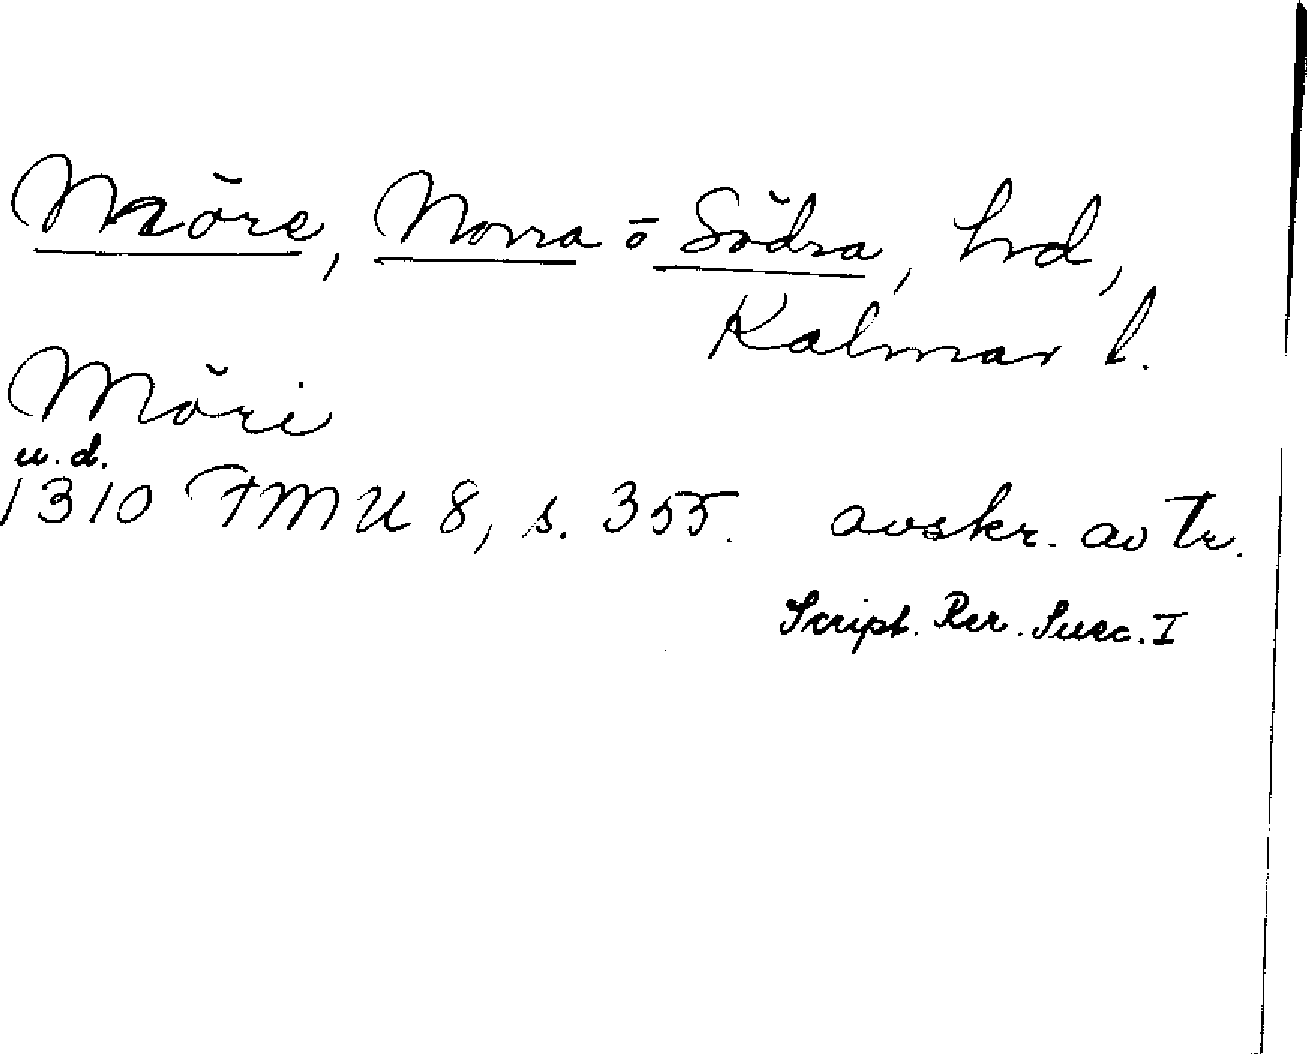 Möre, Norra o Södra, hd,
Kalmar l.
Möri
u.d.
1310 FMU 8, s. 355. avskr. av Tr.
Script. Rer. Suec. I